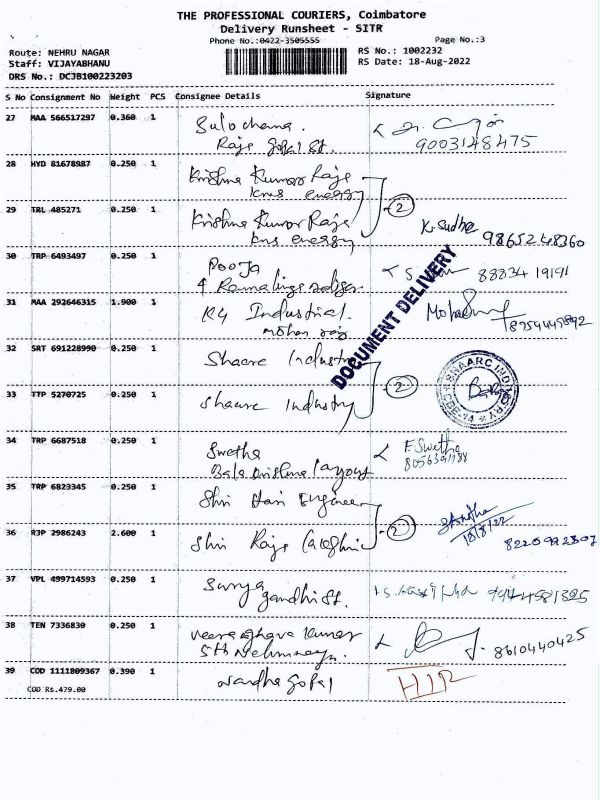 THE PROFESSIONAL COURIERS, Coimbatore
Delivery Runsheet - SITR
Phone No.:0422-3505555
Page No.:3
Route: NEHRU NAGAR
RS No.: 1002232
Staff: VIJAYABHANU
RS Date: 18-Aug-2022
DRS No.: DCJB100223203
S No Consignment No Weight PCS Consignee Details Signature
27 MAA 566517297 0.360 1 Sulochana.
Raja Gopal St.
9003148475
28 HYD 81678987 0.250 1 Krishna Kumar Raja
kns energy
2
29 TRL 485271 0.250 1 Krishna Kumar Raja
kns energy
K. Sudha 9865248360
30 TRP 6493497 0.250 1 Pooja
88834 19191
DOCUMENT DELIVERY
31 MAA 292646315 1.900 1 Industrial.
Mohan raj
32 SRT 691228990 0.250 1 Shaarc Industry
2
SHAARC INDUSTRY
CBE-14
33 TTP 5270725 0.250 1 Shaarc Industry
34 TRP 6687518 0.250 1 Swetha
Bala Krishna layout
F. Swetha
35 TRP 6823345 0.250 1 Shri Hari Engineer
2
18/8/22
36 RJP 2986243 2.600 1 Shri Raja
37 VPL 499714593 0.250 1 Surya
gandhi St.
38 TEN 7336830 0.250 1 Veeraghava Kumar
5th
8610440425
39 COD 1111809367 0.390 1 Nandha Gopal
COD Rs.479.00